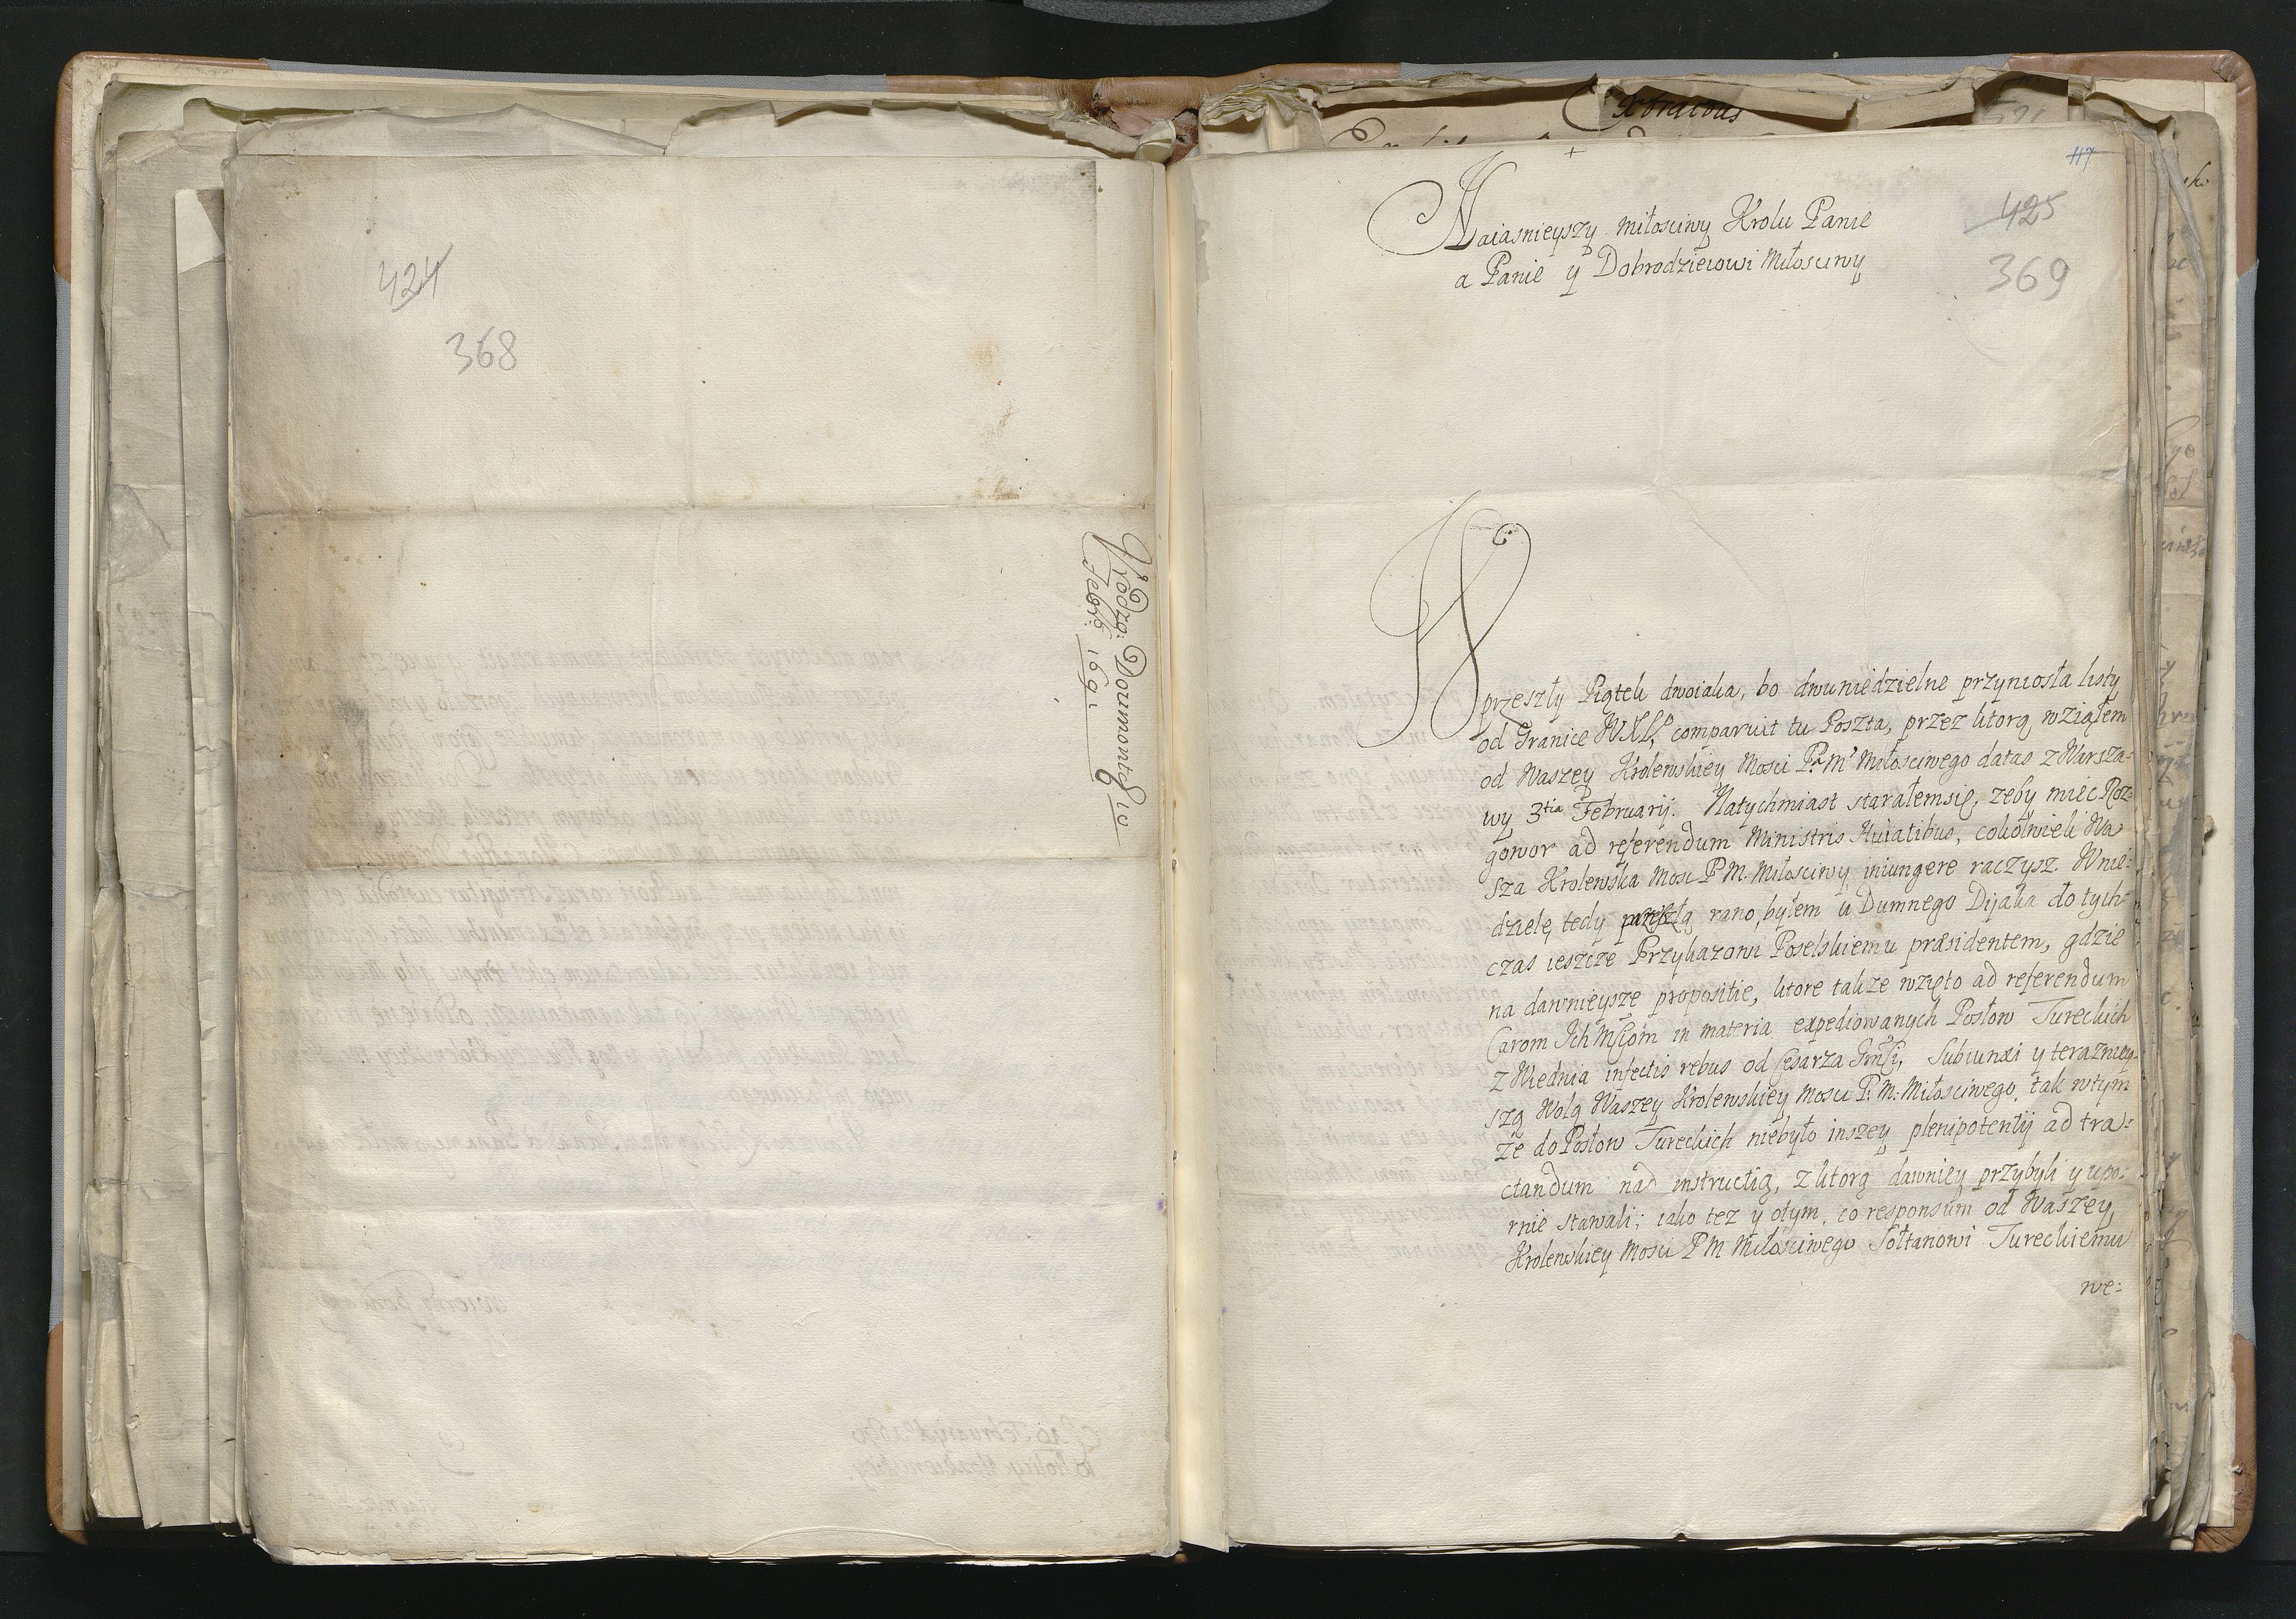 424
368
Urodzg: Dowmont 6 io
Febr: 1691
Extractus
117
425
369
Naiasnieyszy miłosciwy Krolu Panie
a Panie y Dobrodzieiowi Miłosciwy
W przeszły Piątek dwoiaka, bo dwuniedzielne przyniosła listy
od Granice WXL, comparuit tu Poszta, przez ktorą wziąłem
od Waszey Krolewskiey Mosci P. M. Miłosciwego datas z Warsza-
wy 3tia Februarij. Natychmiast starałemsię, zeby miec Roz-
gowor ad referendum Ministris Huiatibus, cokolwiek Wa-
sza Krolewska Mosc P M. Miłosciwy iniungere raczysz. W nie-
dzielę tedy przeszłą rano, byłem u Dumnego Dijaka dotych-
czas ieszcze Przykazowi Poselskiemu præsidentem, gdzie
na dawnieysze propositie, ktore takze wzięto ad referendum
Carom Ich Mściom in materia expediowanych Posłow Tureckich
z Wiednia infectis rebus od Cesarza JmSci, Subiunxi y terazniey-
szą Wolą Waszey Krolewskiey Mosci P. M: Miłosciwego, tak wtym
że do Posłow Tureckich niebyło inszey plenipotentij ad tra-
ctandum nad instructią, z ktorą dawniey przybyli y upo-
rnie stawali; iako tez y otym, co responsum od Waszey
Krolewskiey Mosci P M Miłosciwego Sołtanowi Tureckiemu
we: